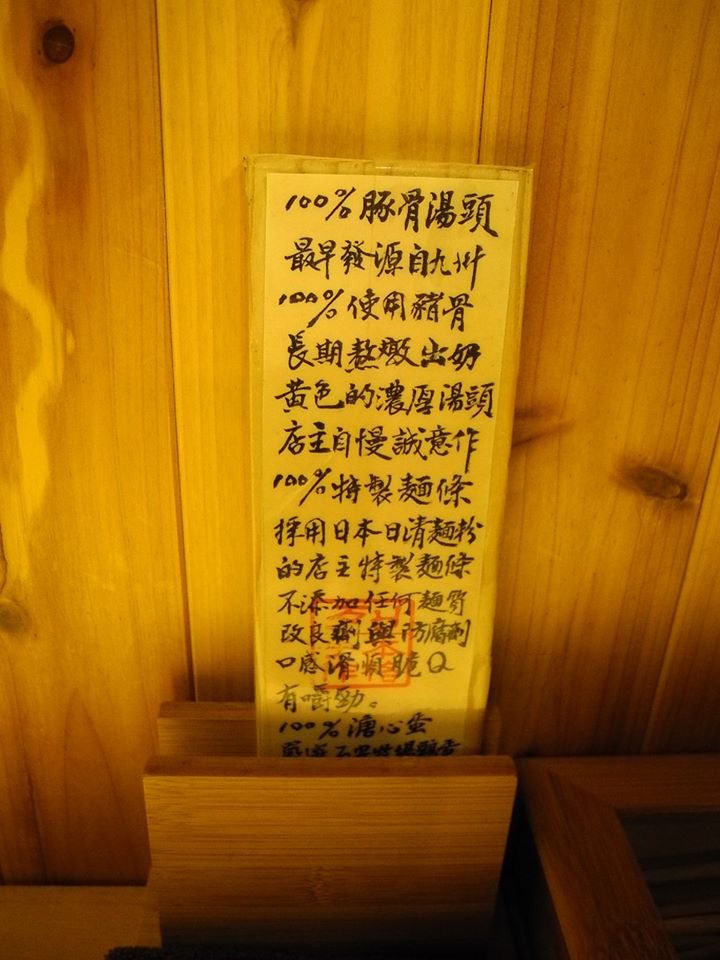 100%豚骨湯頭
最早發源自九州
100%使用豬骨
長期熬燉出奶
黃色的濃厚湯頭
店主自慢誠意作
100%特製麵條
採用日本日清麵粉
的店主特製麵條
不添加任何麵質
改良劑與防腐劑
口感滑順脆Q
有嚼勁。
100%溏心蛋
嚴選